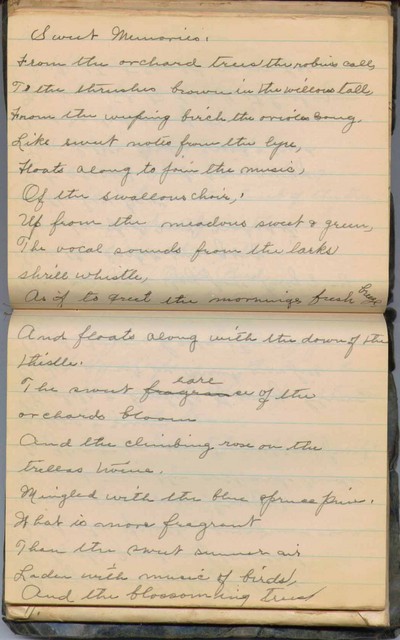 Sweet Memories.
From the orchard trees the robins call,
To the thrushes brown in the willows tall,
From the weeping birch the orioles song
Like sweet notes from the lyre,
Floats along to join the music,
Of the swallows choir,
Up from the meadows sweet & green,
The vocal sounds from the larks
shrill whistle,
As if to greet the mornings fresh
And floats along with the down of the
thistle.
The sweet of the
orchards bloom
And the climbing rose on the
trelless twine.
Mingled with the blue spruce pine.
What is more fragrant
Then the sweet summer air
Laden with music of birds,
And the blossoming trees